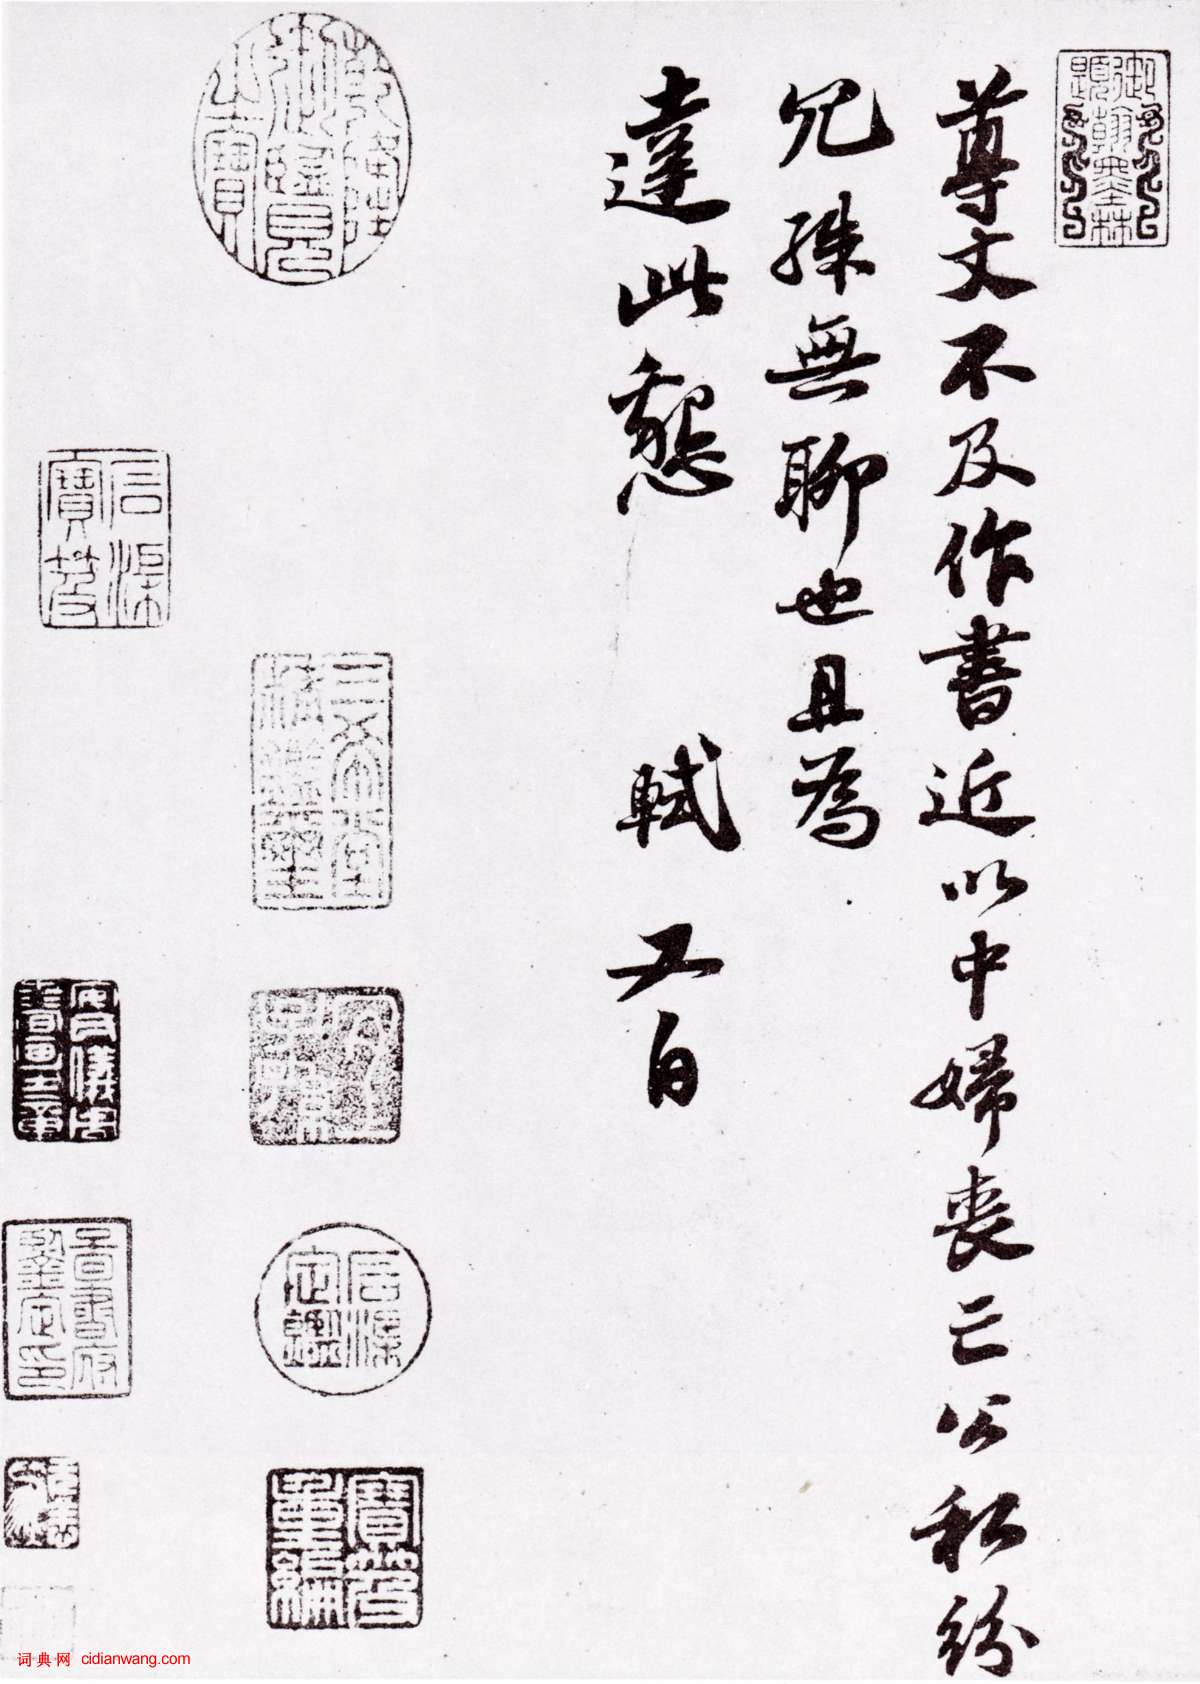 尊丈不及作書近以中婦喪亡公私紛
冗殊無聊也且為
達此懇　軾又白
御題翰墨林
乾隆御覽之寶
石渠寶笈
三希堂精鑑璽
宜子孫
石渠定鑑
寶笈重編
安儀周家珍藏
詞典网 cidianwang.com